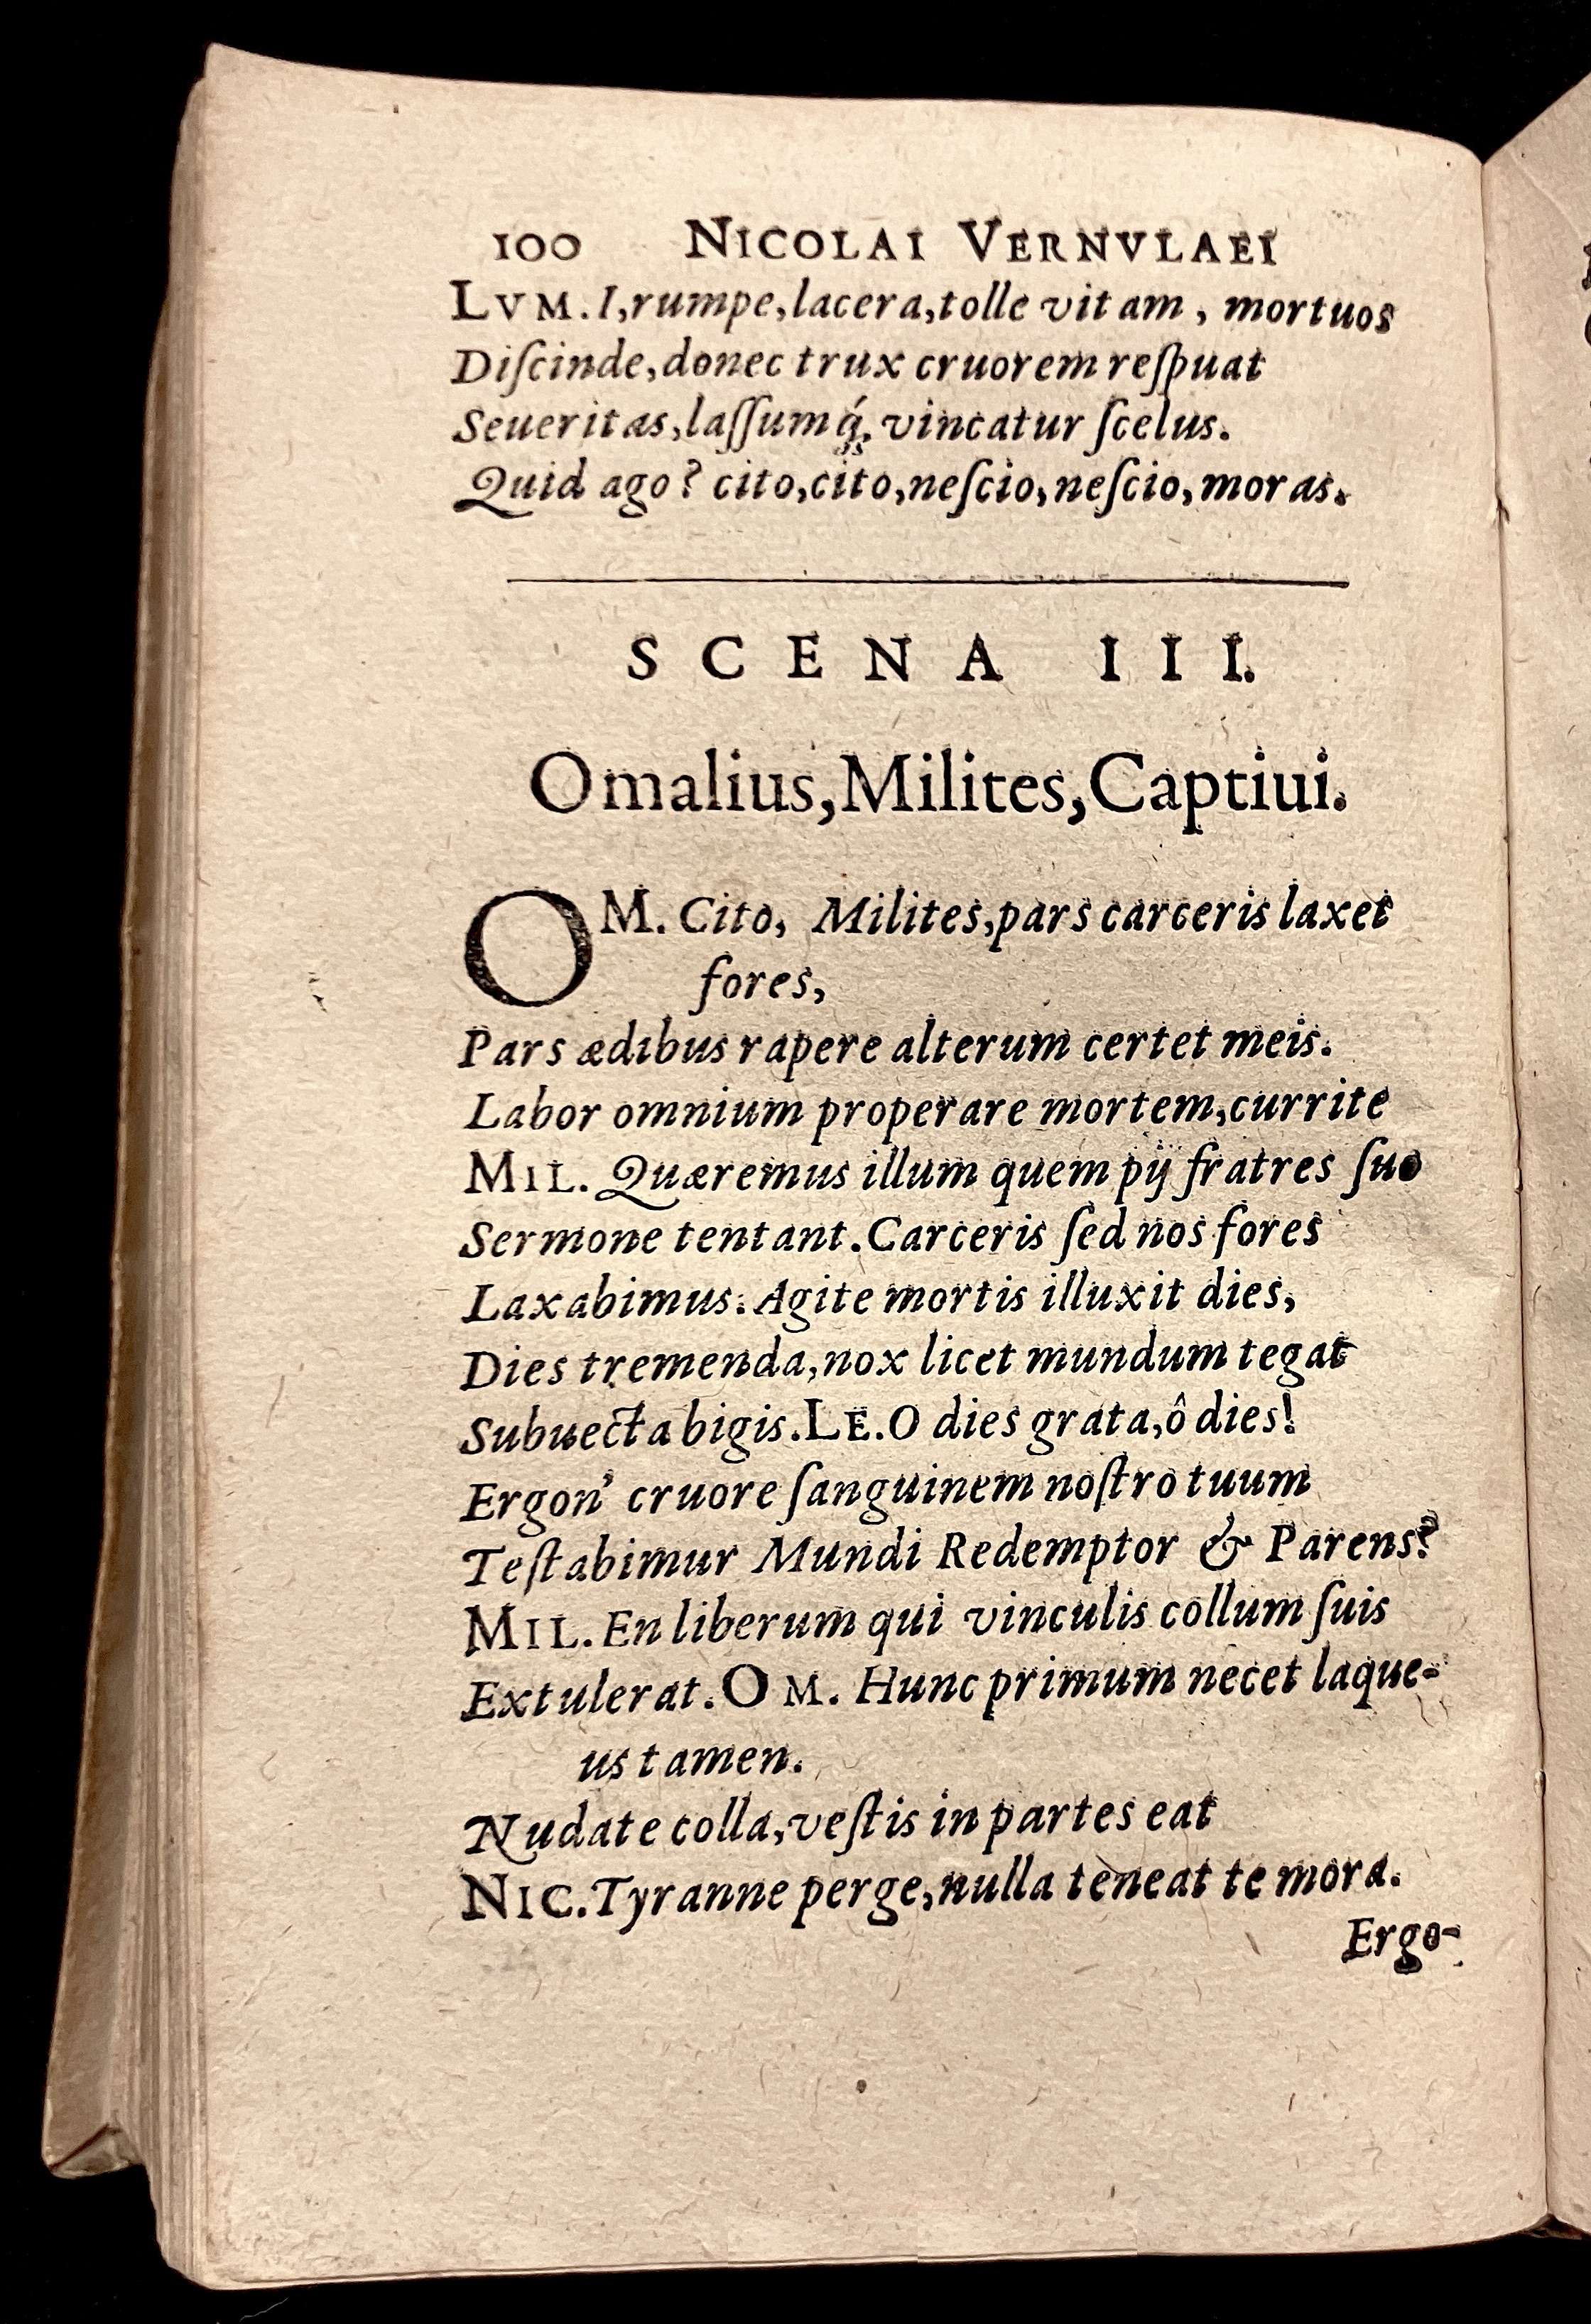 100 NICOLAI VERNVLAEI
LVM. I,rumpe,lacera,tolle vitam, mortuos
Diſcinde,donec trux cruorem reſpuat
Seueritas,laſſumq́; vincatur ſcelus.
Quid ago? cito,cito,neſcio,neſcio,moras.
SCENA III.
Omalius,Milites,Captiui.
OM. Cito, Milites,pars carceris laxet
fores,
Pars ædibus rapere alterum certet meis.
Labor omnium properare mortem,currite
MIL. Quæremus illum quem pij fratres ſuo
Sermone tentant.Carceris ſed nos fores
Laxabimus. Agite mortis illuxit dies,
Dies tremenda,nox licet mundum tegat
Subuecta bigis.LE.O dies grata,ô dies!
Ergon' cruore ſanguinem noſtro tuum
Teſtabimur Mundi Redemptor & Parens?
MIL. En liberum qui vinculis collum ſuis
Extulerat.OM. Hunc primum necet laque-
us tamen.
Nudate colla,veſtis in partes eat
NIC.Tyranne perge,nulla teneat te mora.
Ergo-